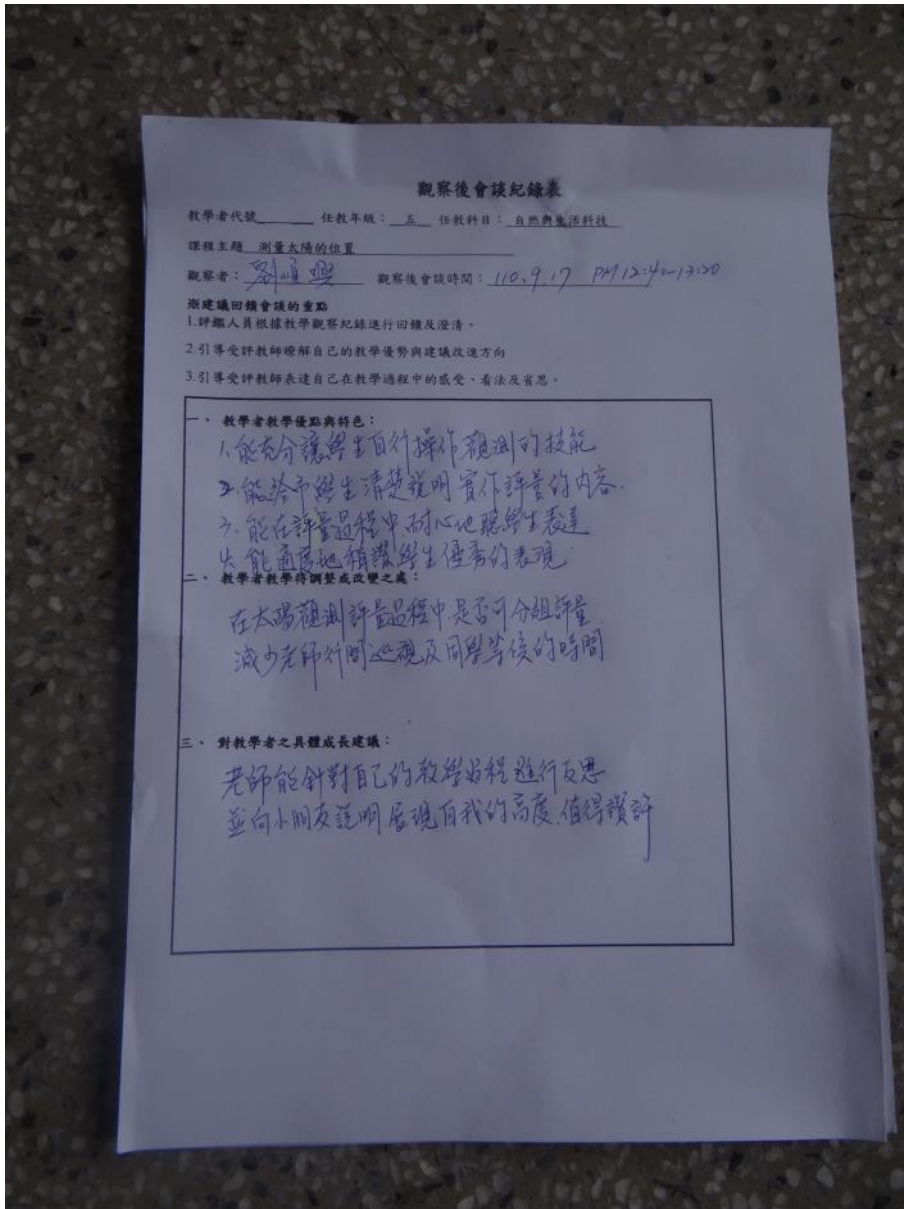 觀察後會談紀錄表
教學者代號______ 任教年級：五 任教科目：自然與生活科技
課程主題 測量太陽的位置
觀察者：劉順興 觀察後會談時間：110.9.17 PM12:40-13:20
※建議回饋會談的重點
1.評鑑人員根據教學觀察紀錄進行回饋及澄清。
2.引導受評教師瞭解自己的教學優勢與建議改進方向
3.引導受評教師表達自己在教學過程中的感受、看法及省思。
一、教學者教學優點與特色：
1、能充分讓學生自行操作觀測的技能
2.能給予學生清楚說明實作評量的內容.
3.能在評量過程中耐心地聽學生表達
4.能適度地稱讚學生優秀的表現
二、教學者教學待調整或改變之處：
在太陽觀測評量過程中是否可分組評量
減少老師行間巡視及同學等候的時間
三、對教學者之具體成長建議：
老師能針對自己的教學過程進行反思
並向小朋友說明展現自我的高度.值得讚許